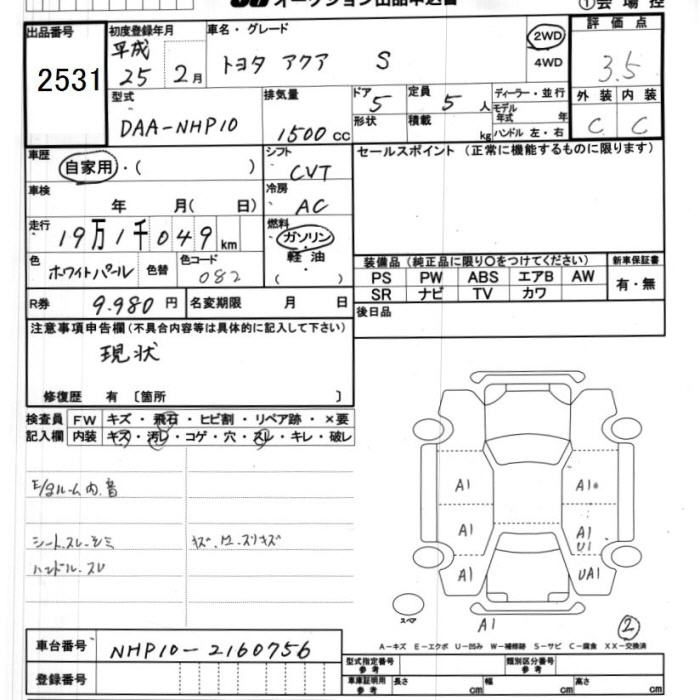 オークション出品申込書
①会場控
出品番号
2531
初度登録年月
平成
25 2月
車名・グレード
トヨタ アクア S
2WD
4WD
評価点
3.5
型式
DAA-NHP10
排気量
1500 CC
ドア 5
形状
定員 5 人
積載 kg
ディーラー・並行
モデル年式 年
ハンドル 左・右
外装 内装
C C
車歴
自家用・( )
シフト
CVT
セールスポイント (正常に機能するものに限ります)
車検
年 月( 日)
冷房
AC
走行
19万1千049km
燃料
ガソリン
軽油
( )
色
ホワイトパール
色替
色コード
082
装備品 (純正品に限り○をつけてください)
新車保証書
PS PW ABS エアB AW
SR ナビ TV カワ
有・無
R券 9.980円
名変期限 月 日
後日品
注意事項申告欄(不具合内容等は具体的に記入して下さい)
現状
修復歴 有 〔箇所 〕
検査員
記入欄
FW キズ・飛石・ヒビ割・リペア跡・×要
内装 キズ・汚レ・コゲ・穴・スレ・キレ・破レ
E/gルーム内.音
シート.スレ.シミ
ハンドル.スレ
A1 A1
A1 A1
U1
A1 UA1
スペア
A1
2
A-キズ E-エクボ U-凹み W-補修跡 S-サビ C-腐食 XX-交換済
車台番号 NHP10-2160756
登録番号
型式指定番号 参考
類別区分番号 参考
車庫証明用 参考
長さ cm
幅 cm
高さ cm